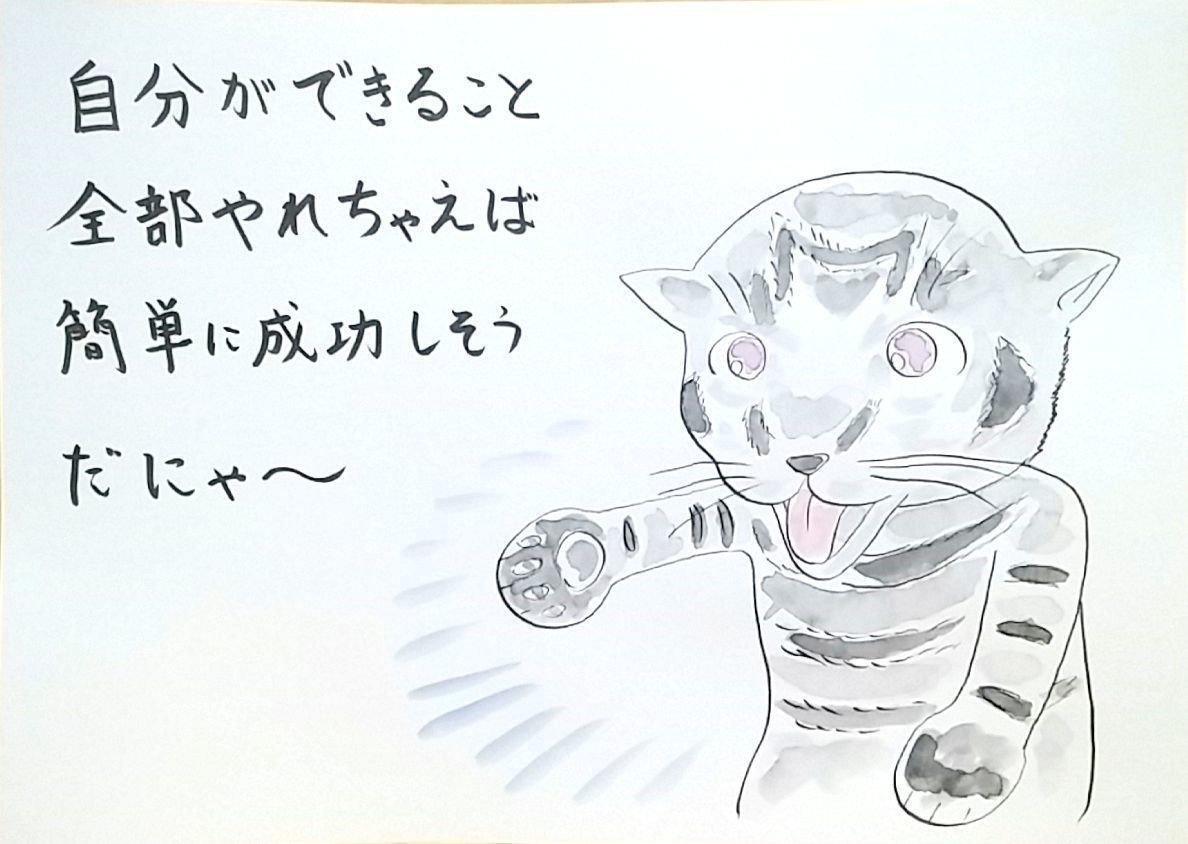 自分ができること
全部やれちゃえば
簡単に成功しそう
だにゃ〜